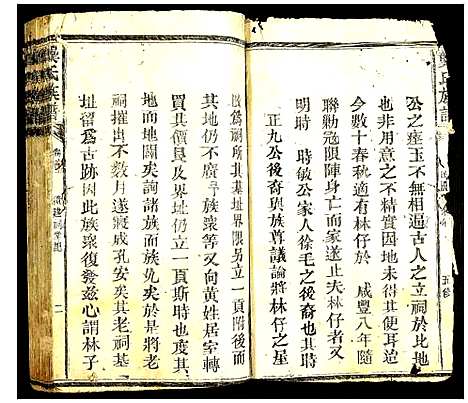 公之瘞玉不無相逼古人之立祠於比地
也非用意之不精實因地未得其便耳迨
今數十春秋適有林仔於 咸豐八年隨
聯勦冠限陣身亡而家遂止夫林仔者又
明時 時敏公家人徐毛之後裔也其時
正九公後裔與族尊議論將林仔之星
改為祠所其基址界限另立一頁附後而
其地仍不廣 族眾等又向黃姓居家轉
買其界址仍立一頁斯時也度其
地而地闊矣詢諸族而族允矣於是將
祠摧出不数月遂蕆成孔安矣其老祠基
址留爲古跡因此族眾復發茲心謂林子
氏族譜
二